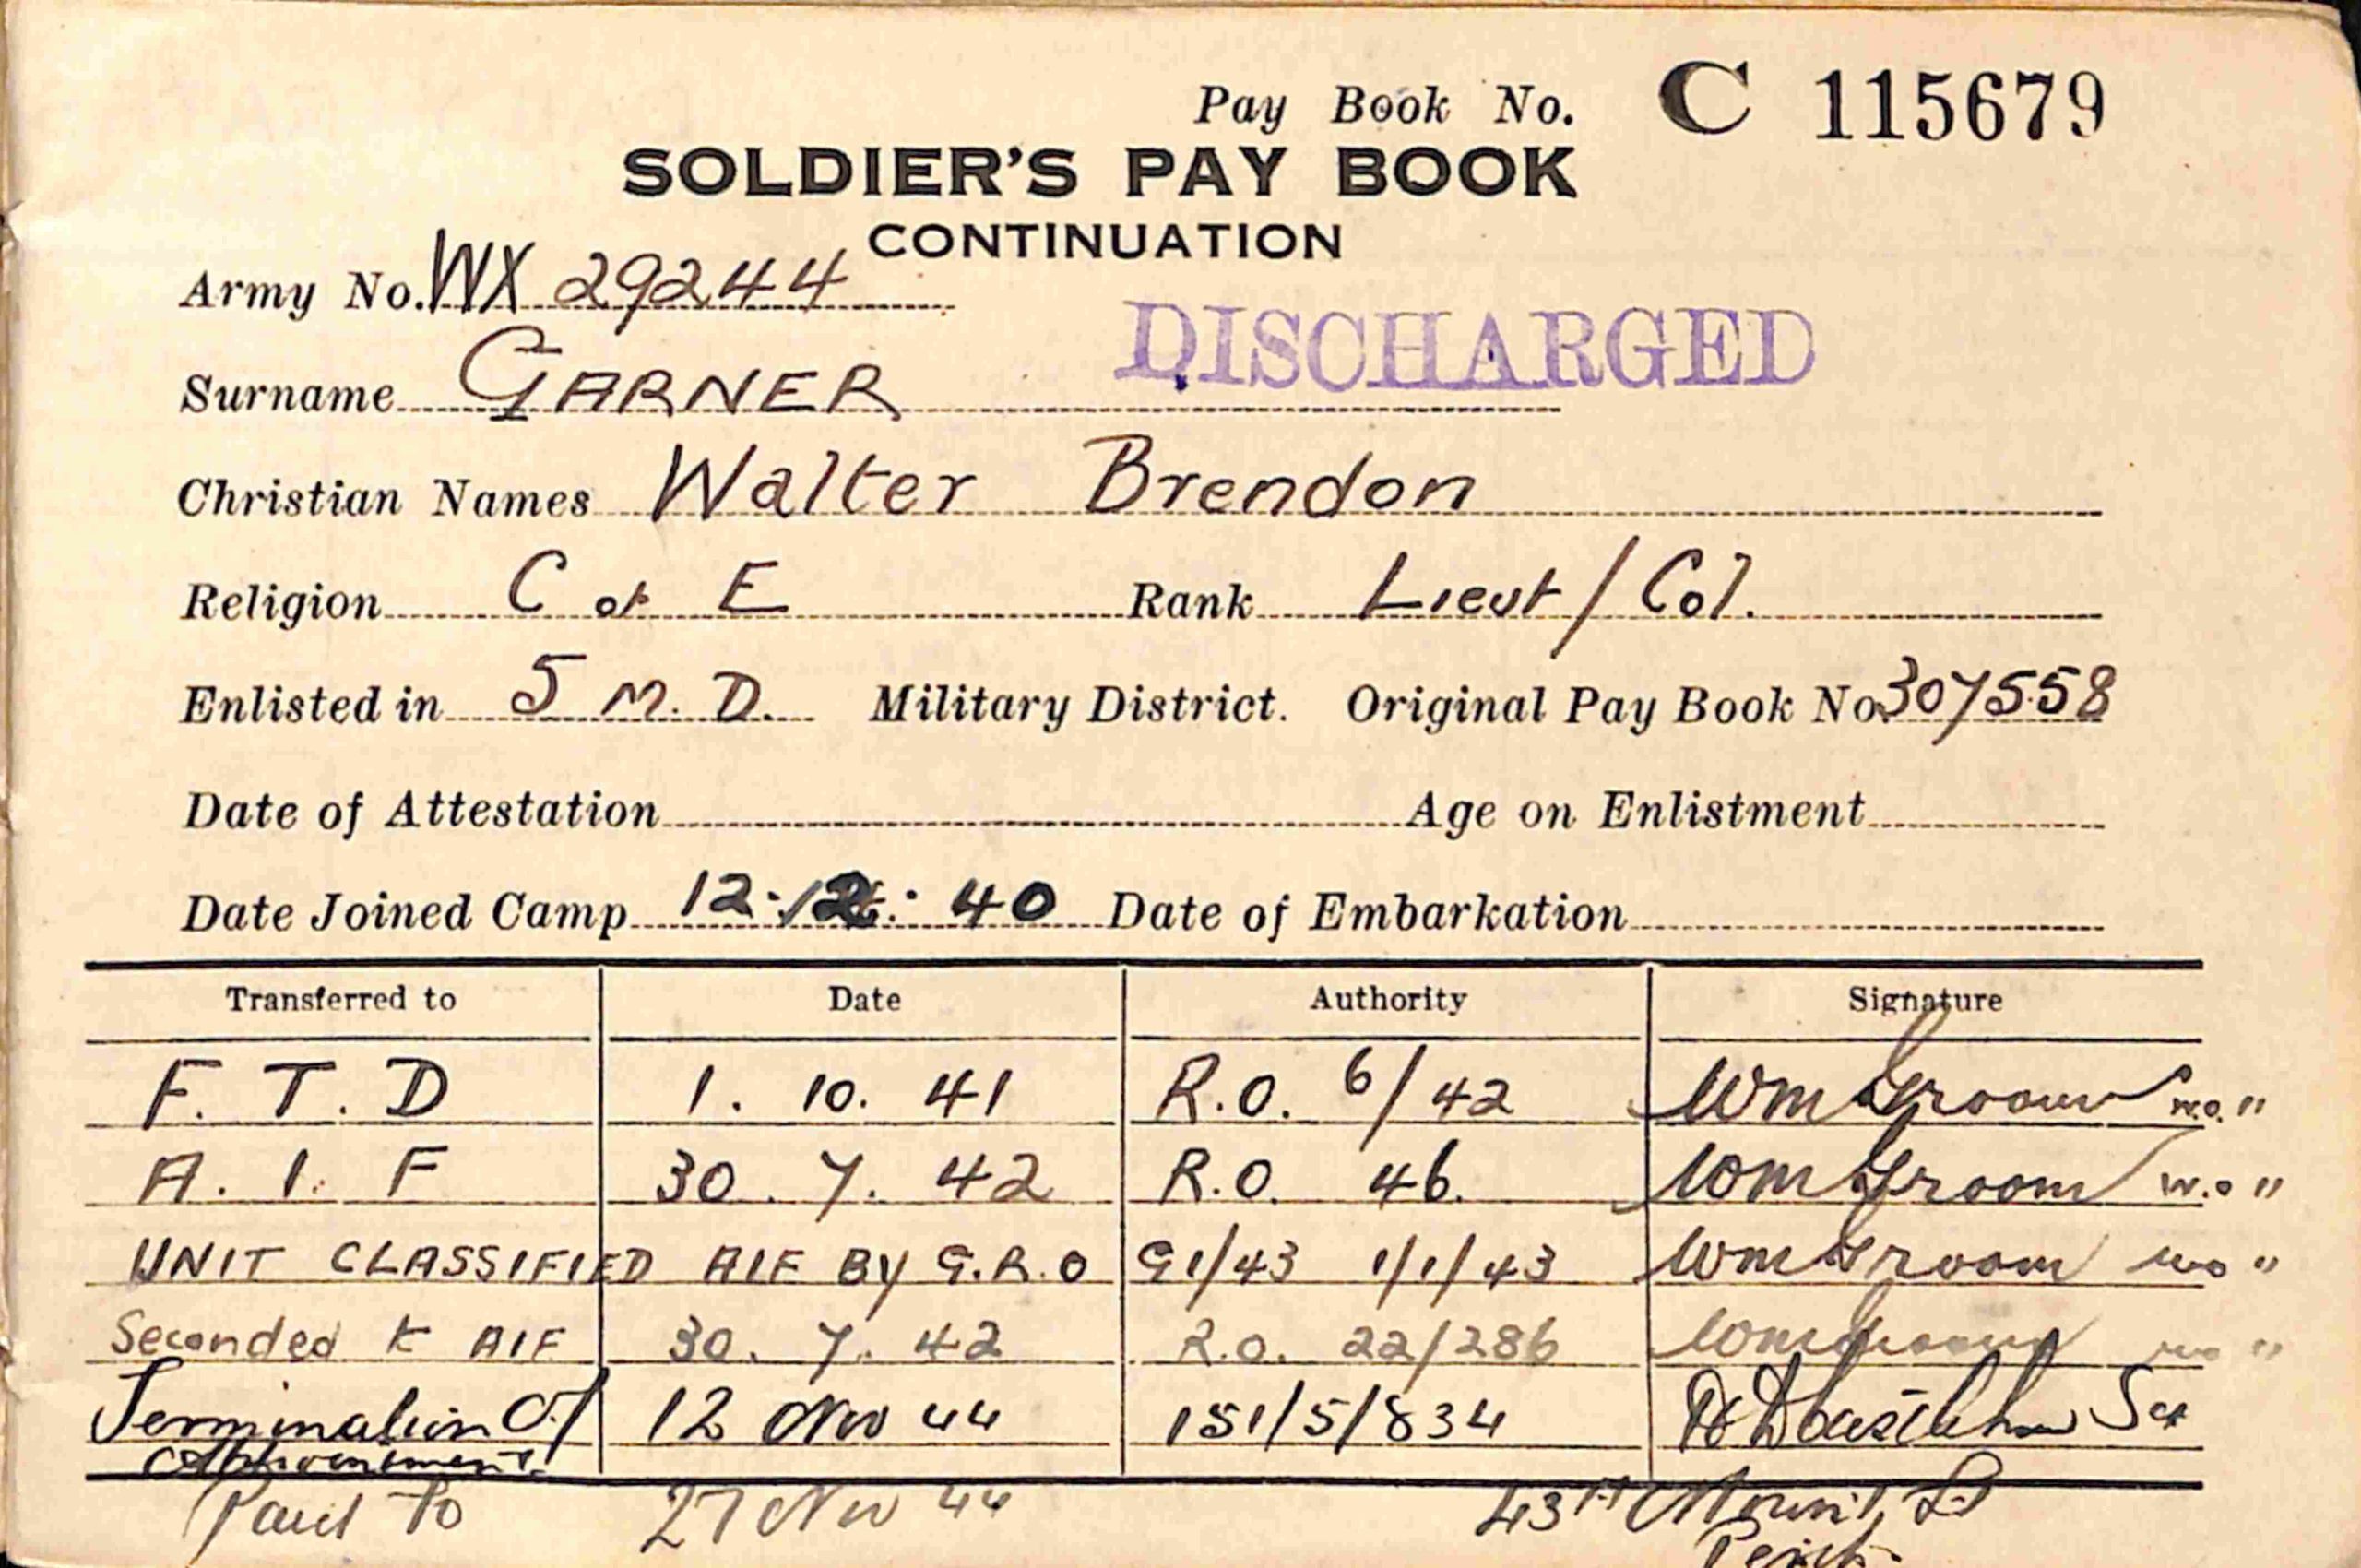 Pay Book No. C 115679
SOLDIER'S PAY BOOK
CONTINUATION
Army No. WX 29244
DISCHARGED
Surname GARNER
Christian Names Walter Brendon
Religion C of E Rank Lieut/Col.
Enlisted in 5 M. D. Military District. Original Pay Book No. 307558
Date of Attestation Age on Enlistment
Date Joined Camp 12. 12. 40 Date of Embarkation
Transferred to Date Authority Signature
F. T. D 1. 10. 41 R.O. 6/42 WmGroom W.O. "
A. I. F 30. 7. 42 R.O. 46. WmGroom W.O "
UNIT CLASSIFIED AIF BY G.R.O G1/43 1/1/43 WmGroom WO "
Seconded to AIF 30. 7. 42 R.O. 22/286 WmGroom WO "
Termination Of 12 Nov 44 151/5/834
Appointment.
Paid to 27 Nov 44 43A Mount St
Perth.